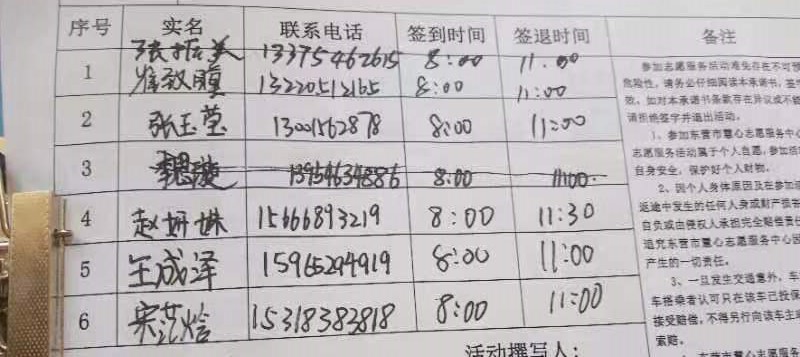 序号 实名 联系电话 签到时间 签退时间 备注
1 张振美 13375462615 8:00 11:00
崔致瞳 13220512165 8:00 11:00
2 张玉莹 13001562878 8:00 11:00
3 13954634886 8:00 11:00
4 赵妍姝 15666893219 8:00 11:30
5 王成泽 15965294919 8:00 11:00
6 宋范焓 15318383818 8:00 11:00
参加志愿服务活动难免存在不可预
危险性,请务必仔细阅读本承诺书,签
效。如对本承诺书条款存在异议或不
请拒绝签字并退出活动。
1、参加东营市慧心志愿服务中心
志愿服务活动属于个人自愿,参加活
自身安全,保护好个人财物。
2、因个人身体原因及在参加
返途中发生的任何人身或财产损
自负或由侵权人承担完全赔偿责
追究东营市慧心志愿服务中心因
产生的一切责任。
3、一旦发生交通意外,车
车搭乘者认可只在该车已投保
接受赔偿,不得另行向该车主
索赔。
活动撰写人: